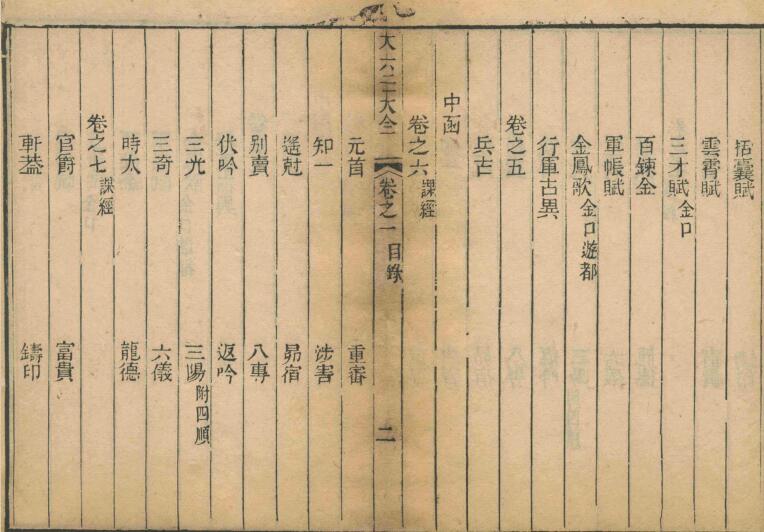 括囊賦
雲霄賦
三才賦 金口
百鍊金
軍帳賦
金鳳歌 金口 遊都
行軍古異
卷之五
兵占
中函
卷之六 課經
大六壬大全 卷之一 目錄 二
元首 重審
知一 涉害
遙尅 昴宿
別責 八專
伏吟 返吟
三光 三陽 附四順
三奇 六儀
時太 龍德
卷之七 課經
官爵 富貴
軒葢 鑄印